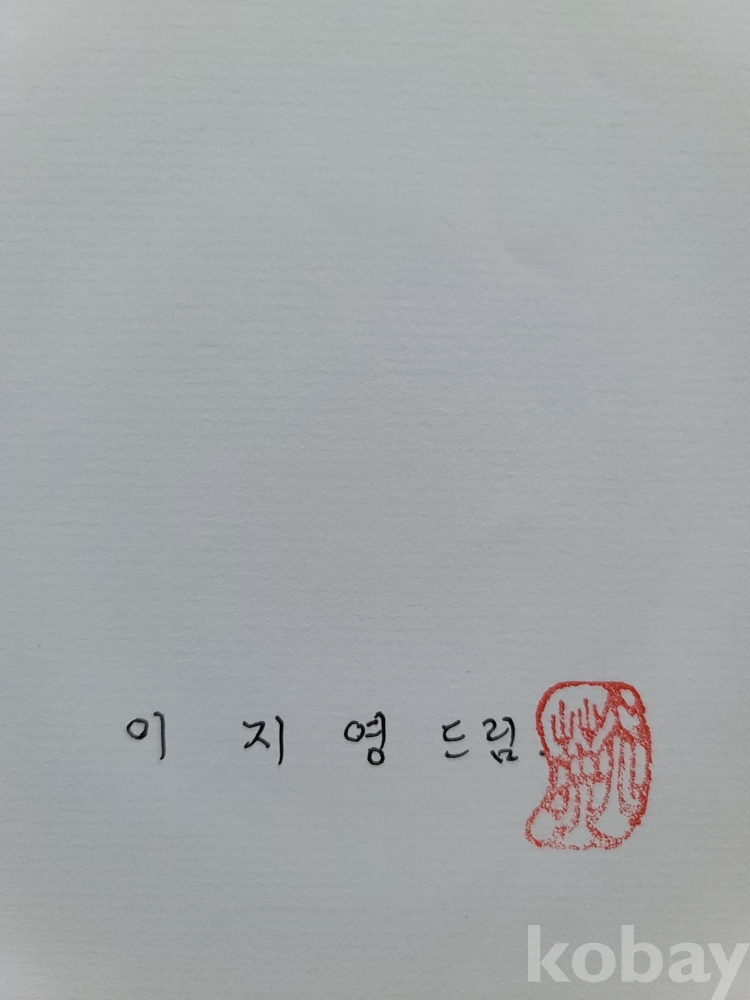 이 지 영 드림.
kobay